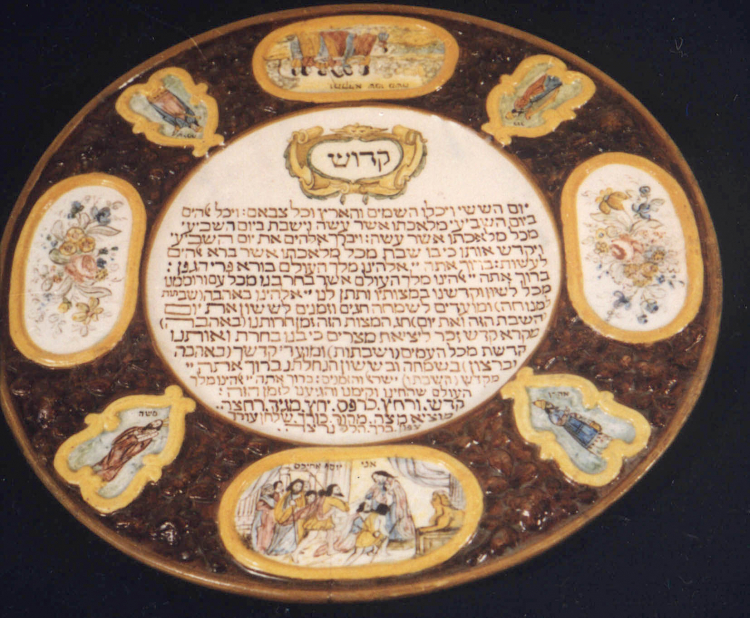 אני יוסף אחיכם
משה
אהרן
קדוש
יום הששי ויכלו השמים והארץ וכל צבאם: ויכל אהים
ביום השביעי מלאכתו אשר עשה וישבת ביום השביעי
מכל מלאכתו אשר עשה: ויברך אלהים את יום השביעי
ויקדש אותו כי בו שבת מכל מלאכתו אשר ברא אהים
לעשות: ברוך אתה יי אהינו מלך העולם בורא פרי הגפן:
ברוך אתה יי אהינו מלך העולם אשר בחר בנו מכל עם ורוממנו
מכל לשון וקדשנו במצותיו ותתן לנו יי אלהינו באהבה (שבתות
למנוחה) ומועדים לשמחה חגים וזמנים לששון את יום
השבת הזה ואת יום) חג המצות הזה זמן חרותנו (באהבה)
מקרא קדש זכר ליציאת מצרים כי בנו בחרת ואותנו
קדשת מכל העמים (ושבתות) ומועדי קדשך (באהבה
וברצון) בשמחה ובששון הנחלתנו ברוך אתה יי
מקדש (השבת ו) ישראל והזמנים: ברוך אתה יי אהינו מלך
העולם שהחיינו וקימנו והגיענו לזמן הזה:
קדש. ורחץ. כרפס. יחץ. מגיד. רחצה.
מוציא. מצה. מרור. כורך. שלחן עורך
צפון. ברך. הלל. נרצה.